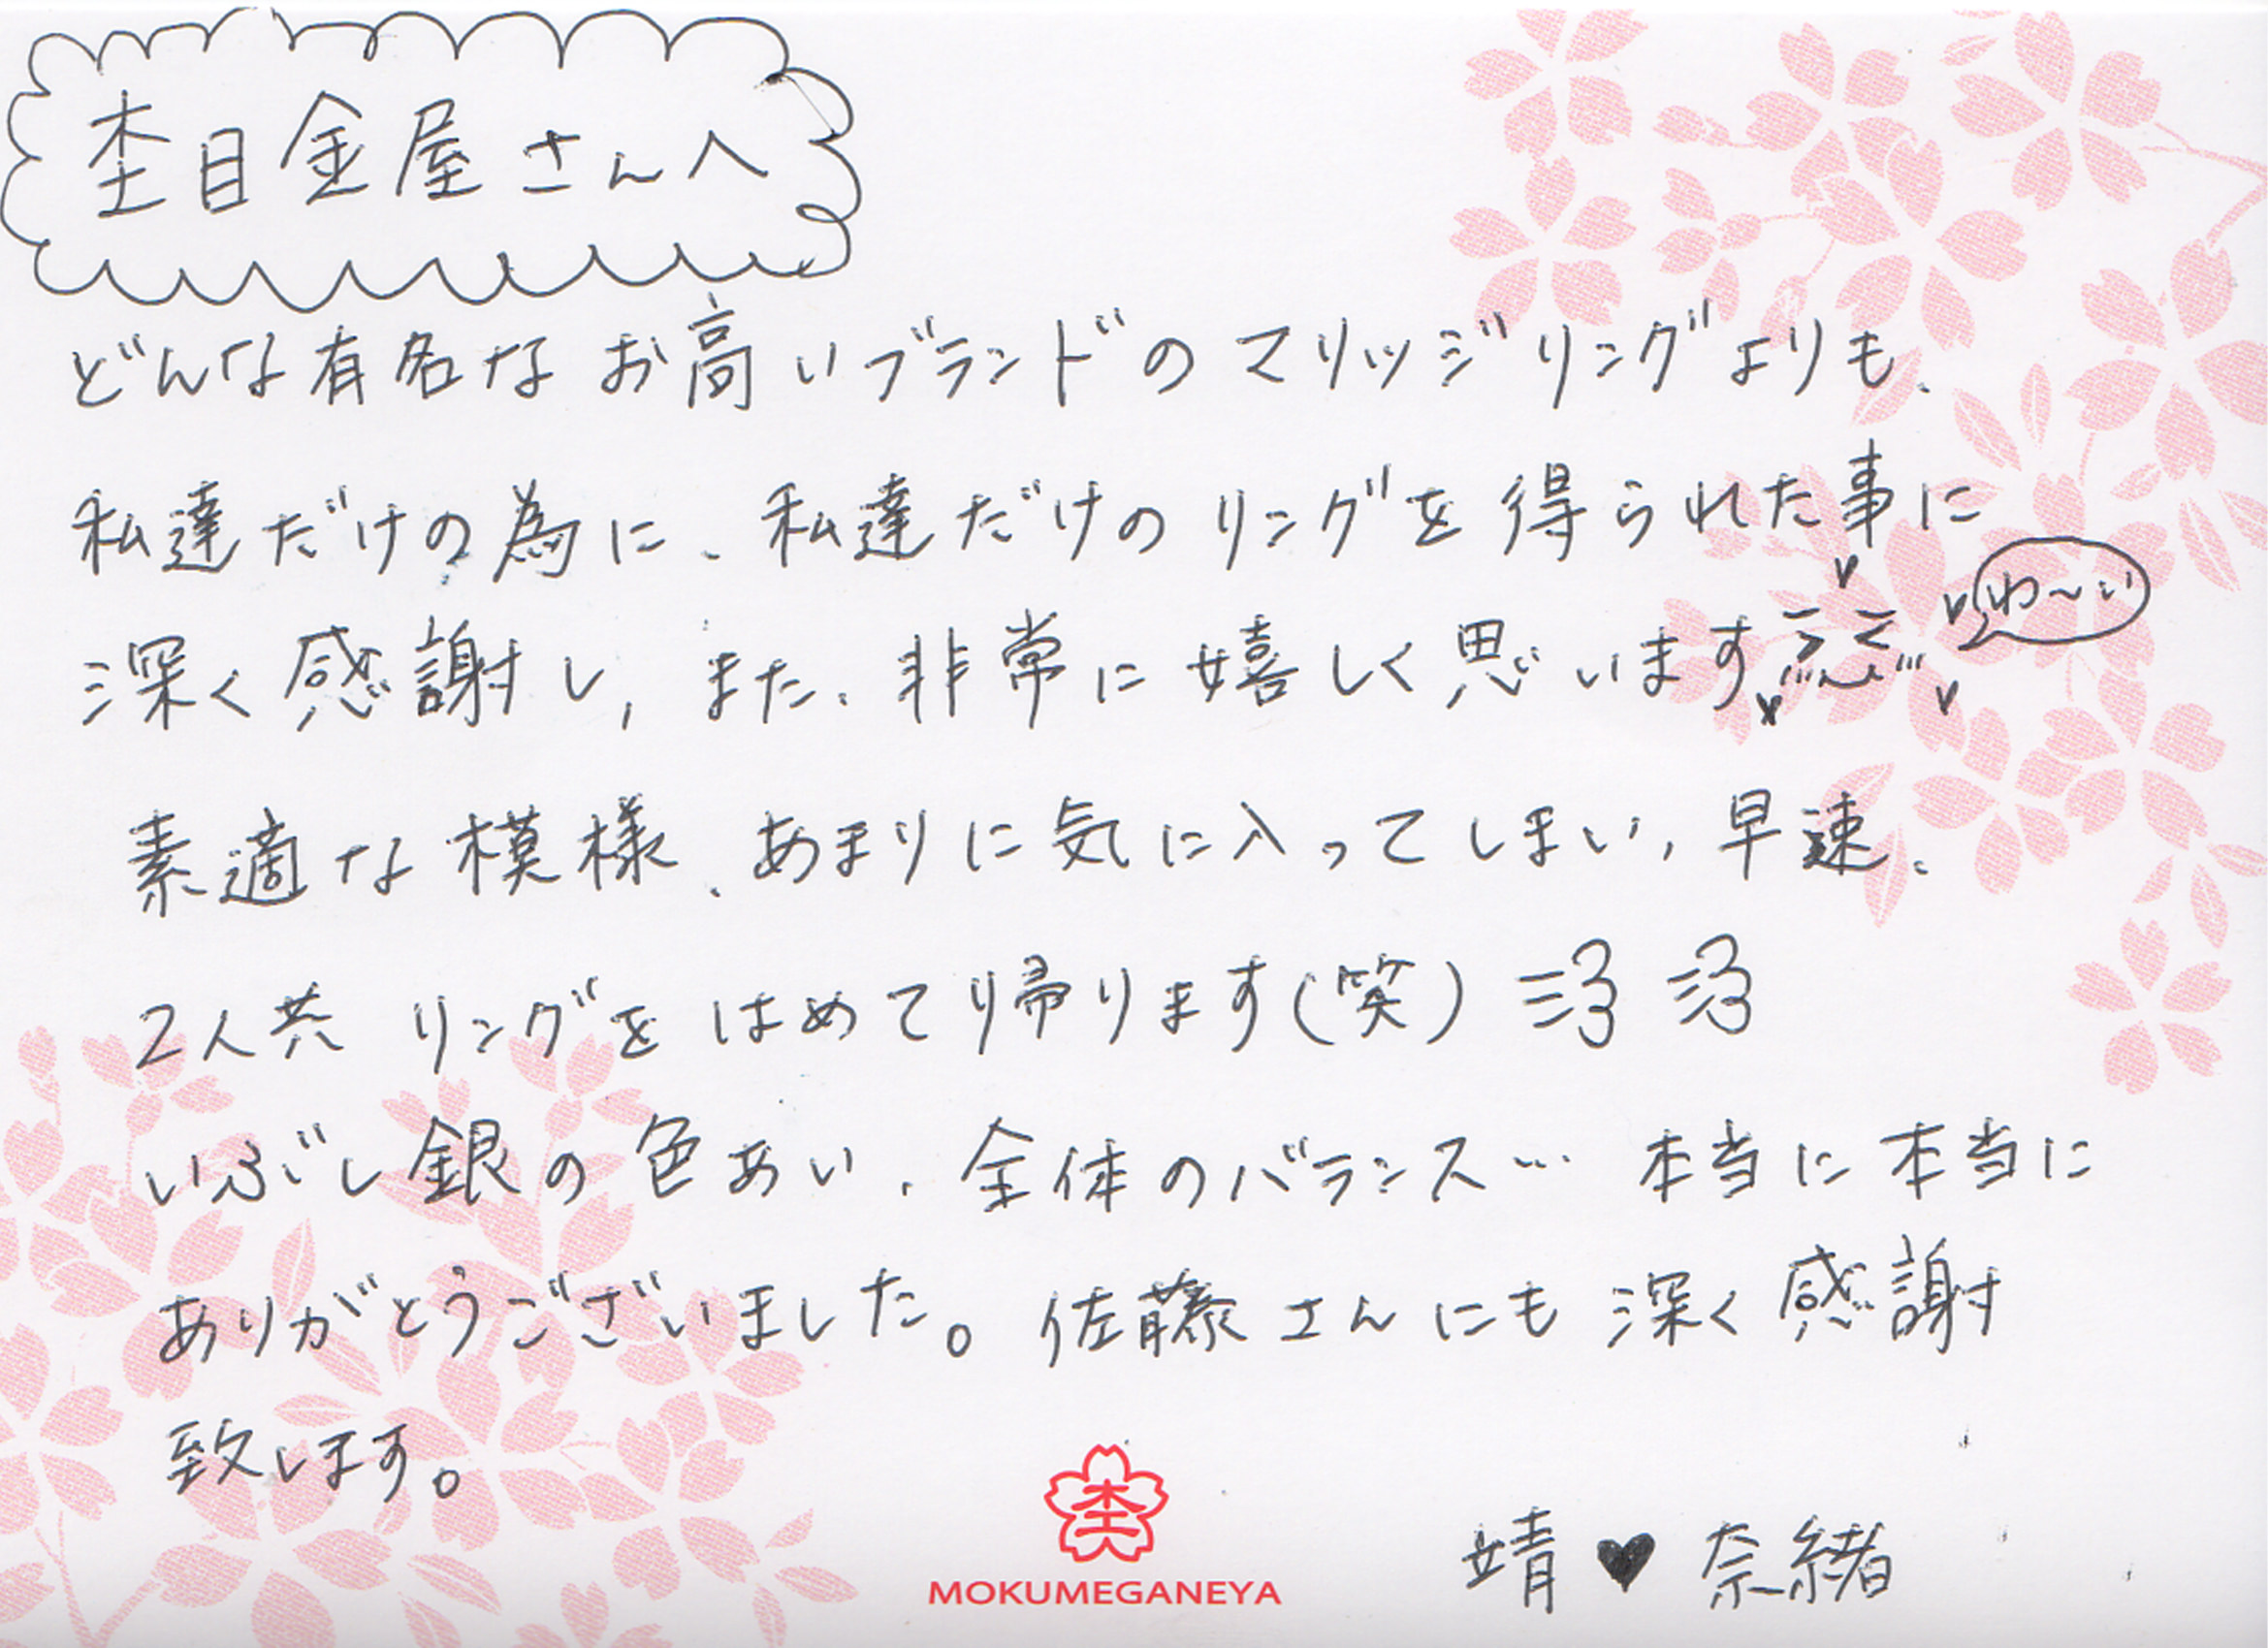 杢目金屋さんへ
どんな有名なお高いブランドのマリッジリングよりも、
私達だけの為に、私達だけのリングを得られた事に
わ〜い
深く感謝し、また、非常に嬉しく思います
素適な模様、あまりに気に入ってしまい、早速、
2人共 リングをはめてり帰ります(笑)
いぶし銀の色あい、全体のバランス… 本当に本当に
ありがとうございました。佐藤さんにも深く感謝
致します。
杢
MOKUMEGANEYA
靖♥奈緒